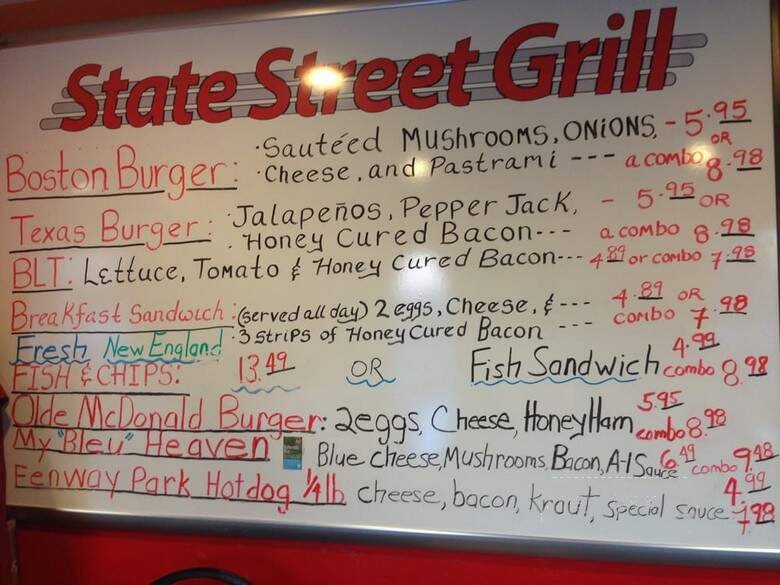 State Street Grill
Boston Burger: · Sautéed Mushrooms, Onions, - 5.95 OR
· Cheese, and Pastrami --- a combo 8.98
Texas Burger: · Jalapeños, Pepper Jack, - 5.95 OR
· Honey Cured Bacon --- a combo 8.98
BLT: Lettuce, Tomato & Honey Cured Bacon --- 4.89 or combo 7.98
Breakfast Sandwich: (served all day) 2 eggs, Cheese, & --- 4.89 OR
· 3 strips of Honey Cured Bacon --- combo 7.98
Fresh New England
FISH & CHIPS: 13.49 OR Fish Sandwich 4.99 combo 8.98
Olde McDonald Burger: 2 eggs, Cheese, Honey Ham 5.95 combo 8.98
My "Bleu" Heaven Blue Cheese, Mushrooms, Bacon, A-1 Sauce 6.49 combo 9.48
Fenway Park Hotdog 1/4 lb cheese, bacon, kraut, special sauce 4.99 7.98